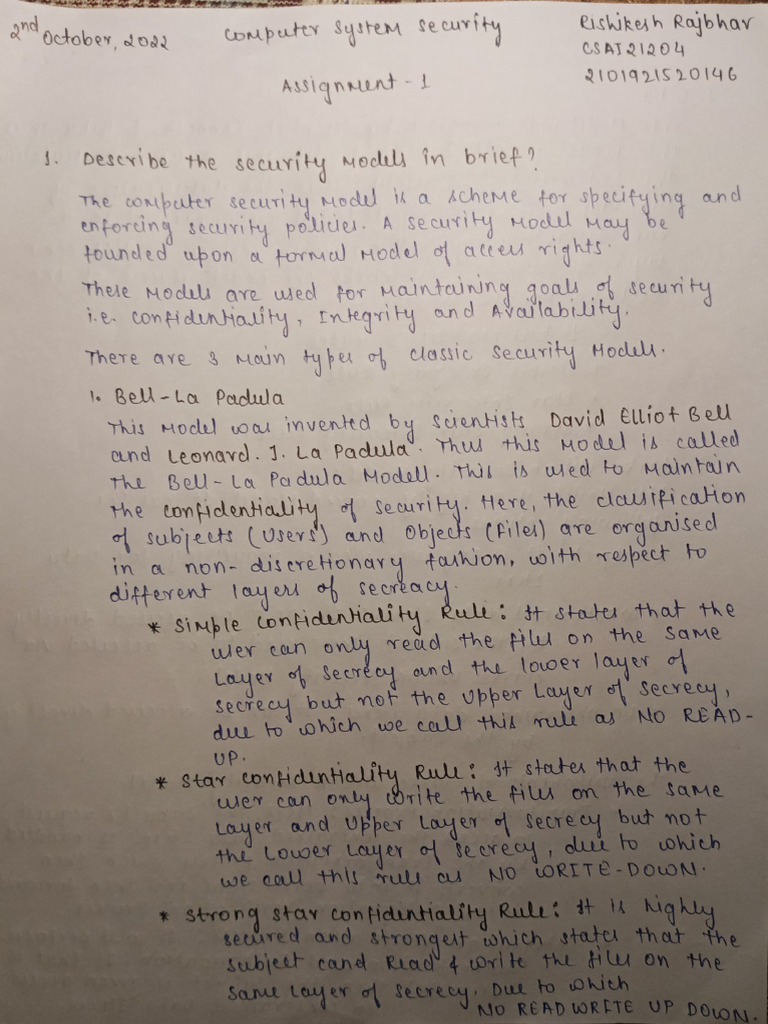 2nd October, 2022
Computer System Security
Rishikesh Rajbhar
CSAI21204
2101921520146
Assignment - 1
1. Describe the security Models in brief?
The computer security Model is a scheme for specifying and
enforcing security policies. A security Model May be
founded upon a formal Model of access rights.
These Models are used for Maintaining goals of security
i.e. confidentiality, Integrity and Availability.
There are 3 Main types of classic Security Models.
1. Bell-La Padula
This Model was invented by scientists David Elliot Bell
and Leonard. J. La Padula. Thus this Model is called
the Bell-La Padula Modell. This is used to Maintain
the confidentiality of security. Here, the classification
of subjects (Users) and Objects (Files) are organised
in a non-discretionary fashion, with respect to
different layers of secreacy.
* Simple Confidentiality Rule: It states that the
user can only read the files on the same
Layer of Secrecy and the lower layer of
Secrecy but not the Upper Layer of Secrecy,
due to which we call this rule as NO READ-
UP.
* Star Confidentiality Rule: It states that the
user can only write the files on the same
Layer and Upper Layer of Secrecy but not
the Lower Layer of Secrecy, due to which
we call this rule as NO WRITE-DOWN.
* Strong Star Confidentiality Rule: It is highly
secured and strongest which states that the
subject cand Read & Write the files on the
same Layer of Secrecy. Due to which
NO READ WRITE UP DOWN.